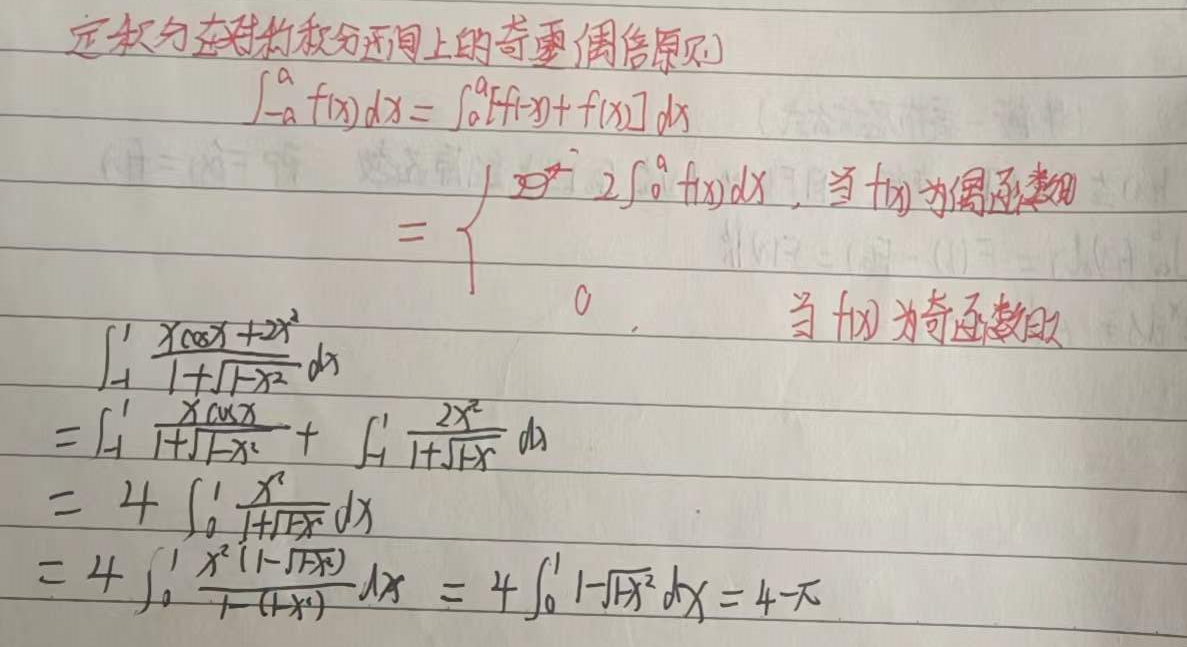 定积分在对称积分区间上的奇零偶倍原则
∫_{-a}^{a} f(x)dx = ∫_0^a [f(-x)+f(x)]dx
= { 2∫_0^a f(x)dx, 当f(x)为偶函数时
0, 当f(x)为奇函数时
∫_{-1}^{1} (xcosx+2x²)/(1+√(1-x²)) dx
= ∫_{-1}^{1} (xcosx)/(1+√(1-x²)) + ∫_{-1}^{1} (2x²)/(1+√(1-x²)) dx
= 4∫_0^1 x²/(1+√(1-x²)) dx
= 4∫_0^1 (x²(1-√(1-x²)))/(1-(1-x²)) dx = 4∫_0^1 1-√(1-x²) dx = 4-π